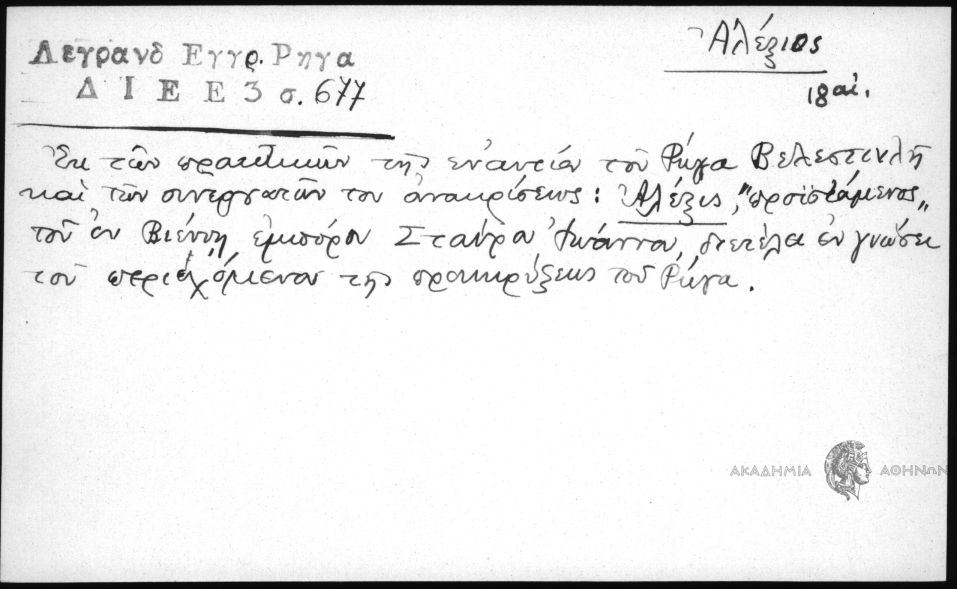 Λεγρανδ Εγγρ. Ρηγα
Δ Ι Ε Ε 3 σ. 677
Ἀλέξιος
18 αἰ.
Ἐκ τῶν πρακτικῶν τῆς ἐναντίον τοῦ Ρήγα Βελεστινλῆ
καὶ τῶν συνεργατῶν του ἀνακρίσεως: Ἀλέξις, "προϊστάμενος"
τοῦ ἐν Βιέννῃ ἐμπόρου Σταύρου Ἰωάννου, διετέλει ἐν γνώσει
τοῦ περιεχομένου τῆς προκηρύξεως τοῦ Ρήγα.
ΑΚΑΔΗΜΙΑ ΑΘΗΝΩΝ